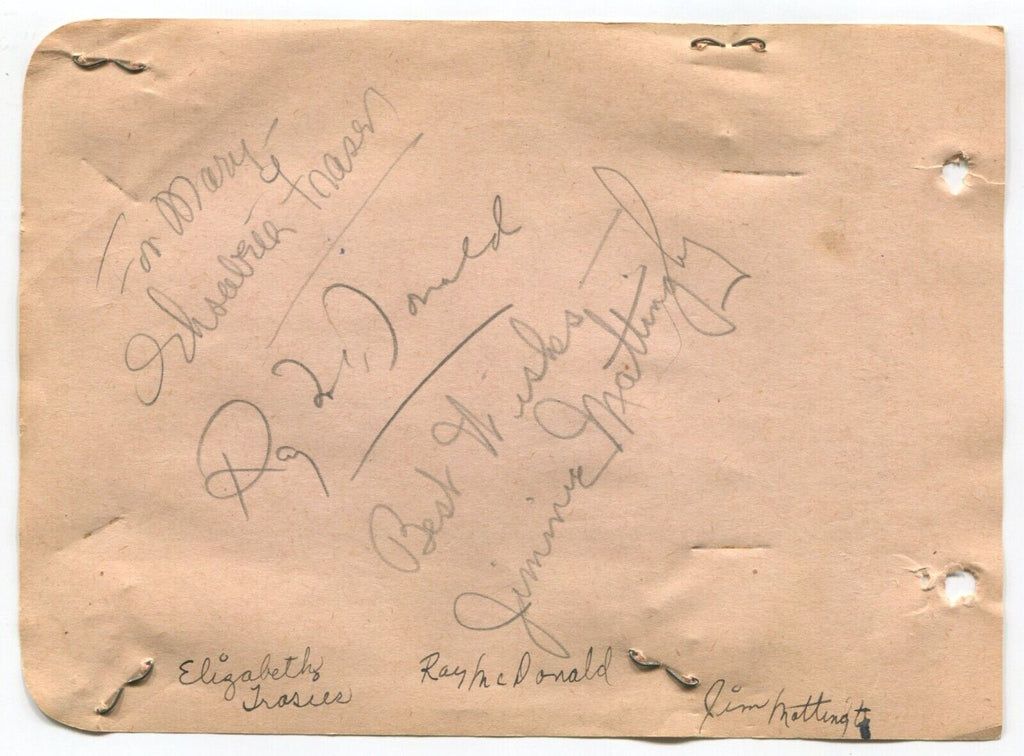 For Mary -
Elisabeth Fraser
Ray McDonald
Best Wishes
Jimmie Mattingly
Elizabeth
Frasies
Ray McDonald
Jim Mattingt